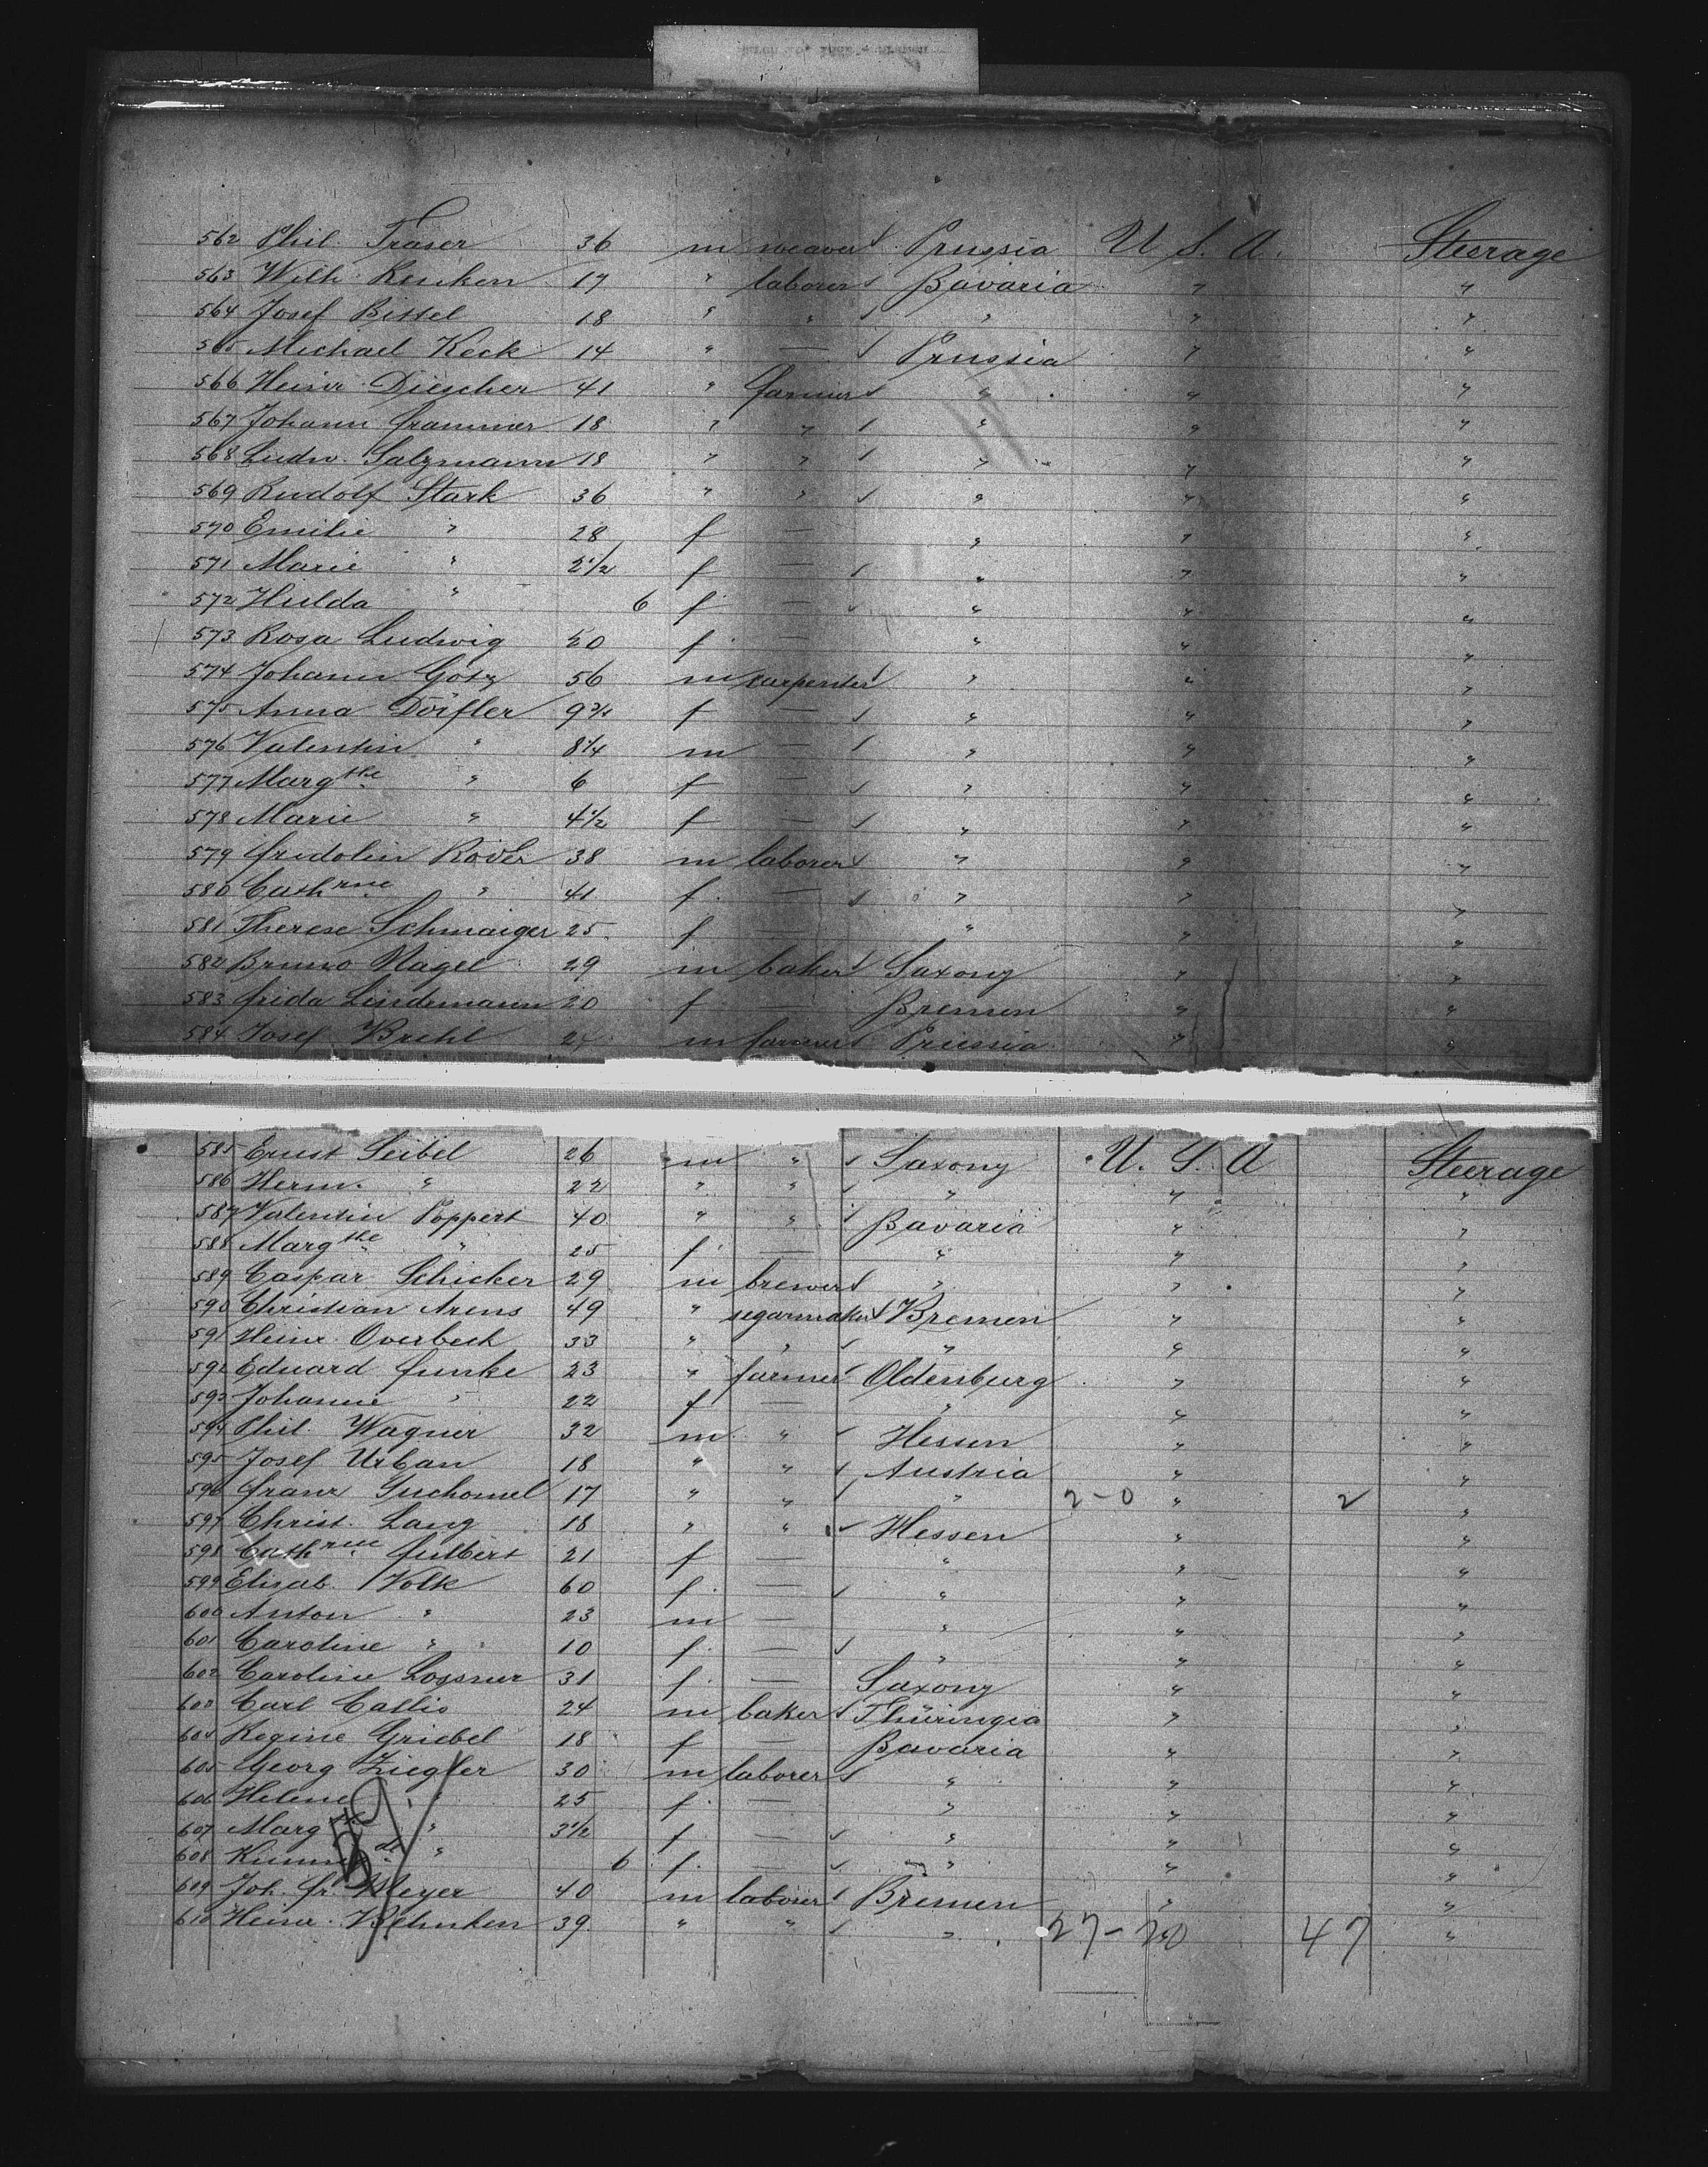 562 Phil. Traser 36 m weaver Prussia U. S. A. Steerage
563 Wilh. Renken 17 " laborer Bavaria " "
564 Josef Bissel 18 " " " " "
565 Michael Keck 14 " — Prussia " "
566 Heinr. Diescher 41 " farmer " " "
567 Johann Frammer 18 " " " " "
568 Ludw. Salzmann 18 " " " " "
569 Rudolf Stark 36 " " " " "
570 Emilie " 28 f — " " "
571 Marie " 2 1/2 f — " " "
572 Hulda " 6 f — " " "
573 Rosa Ludwig 20 f — " " "
574 Johann Götz 56 m carpenter " " "
575 Anna Dörfler 9 3/4 f — " " "
576 Valentin " 8 1/4 m — " " "
577 Margthe " 6 f — " " "
578 Marie " 4 1/2 f — " " "
579 Fridolin Röder 38 m laborer " " "
580 Cathrne " 41 f — " " "
581 Therese Schmaiger 25 f — " " "
582 Bruno Nagel 29 m baker Saxony " "
583 Frida Lindemann 20 f — Bremen " "
584 Josef Brehl 24 m farmer Prussia " "
585 Ernst Seibel 26 m " Saxony U. S. A Steerage
586 Herm. " 22 " " " " "
587 Valentin Poppert 40 " " Bavaria " "
588 Margthe " 25 f — " " "
589 Caspar Schicker 29 m brewer " " "
590 Christian Arens 49 " segarmaker Bremen " "
591 Heinr. Overbeck 33 " " " " "
592 Eduard Funke 23 " farmer Oldenburg " "
593 Johanne " 22 f — " " "
594 Phil. Wagner 32 m " Hessen " "
595 Josef Urban 18 " " Austria " "
596 Franz Suchomel 17 " " " 2-0 " 2 "
597 Christ. Lang 18 " " Hessen " "
598 Cathrne Fulbert 21 f — " " "
599 Elisab. Volk 60 f — " " "
600 Anton " 23 m — " " "
601 Caroline " 10 f — " " "
602 Caroline Lossner 31 f — Saxony " "
603 Carl Callis 24 m baker Thüringia " "
604 Regine Griebel 18 f — Bavaria " "
605 Georg Ziegler 30 m laborer " " "
606 Helene " 25 f — " " "
607 Margthe " 3 1/2 f — " " "
608 " 6 f — " " "
609 Joh. Fr. Meyer 40 m laborer Bremen " "
610 Heinr. Behnken 39 " " " 27-20 47 "